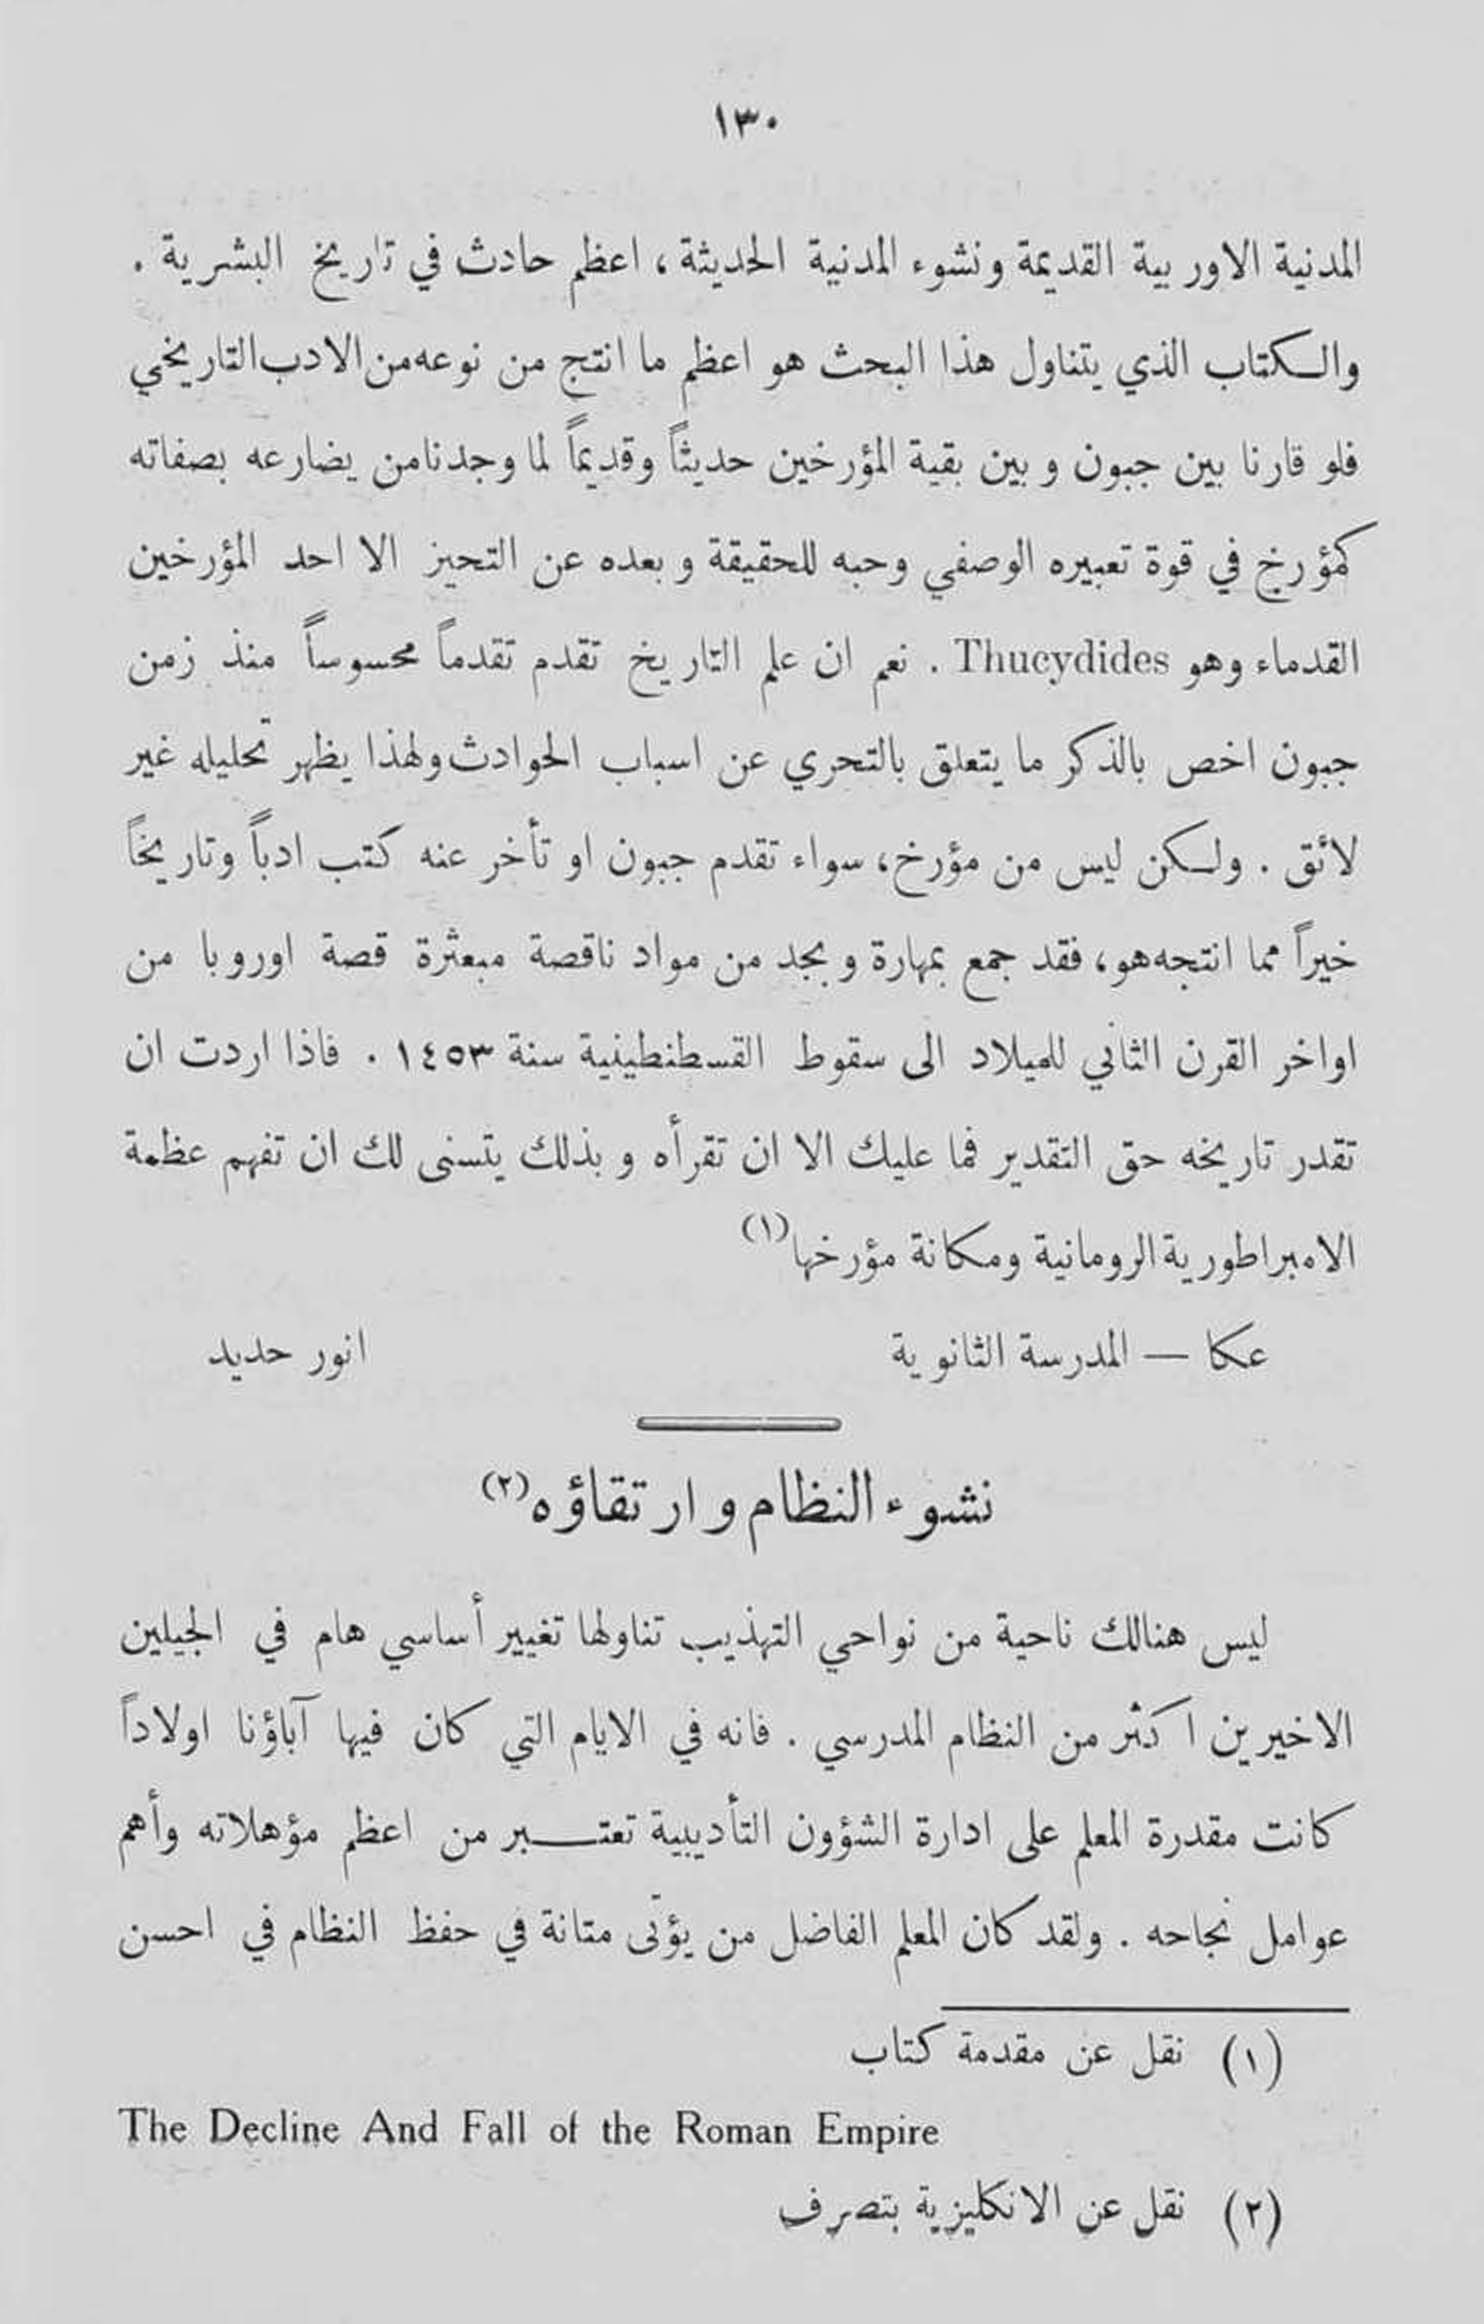 ١٣٠
المدنية الاوربية القديمة ونشوء المدنية الحديثة، اعظم حادث في تاريخ البشرية .
والكتاب الذي يتناول هذا البحث هو اعظم ما انتج من نوعه من الادب التاريخي
فلو قارنا بين جبون وبين بقية المؤرخين حديثاً وقديماً لما وجدنا من يضارعه بصفاته
كمؤرخ في قوة تعبيره الوصفي وحبه للحقيقة وبعده عن التحيز الا احد المؤرخين
القدماء وهو Thucydides . نعم ان علم التاريخ تقدم تقدماً محسوساً منذ زمن
جبون اخص بالذكر ما يتعلق بالتحري عن اسباب الحوادث ولهذا يظهر تحليله غير
لائق . ولكن ليس من مؤرخ، سواء تقدم جبون او تأخر عنه كتب ادباً وتاريخاً
خيراً مما انتجه هو، فقد جمع بمهارة وبجد من مواد ناقصة مبعثرة قصة اوروبا من
اواخر القرن الثاني للميلاد الى سقوط القسطنطينية سنة ١٤٥٣ . فاذا اردت ان
تقدر تاريخه حق التقدير فما عليك الا ان تقرأه وبذلك يتسنى لك ان تفهم عظمة
الامبراطورية الرومانية ومكانة مؤرخها (١)
عكا — المدرسة الثانوية انور حديد
نشوء النظام وارتقاؤه (٢)
ليس هنالك ناحية من نواحي التهذيب تناولها تغيير أساسي هام في الجيلين
الاخيرين اكثر من النظام المدرسي . فانه في الايام التي كان فيها آباؤنا اولاداً
كانت مقدرة المعلم على ادارة الشؤون التأديبية تعتبر من اعظم مؤهلاته وأهم
عوامل نجاحه . ولقد كان المعلم الفاضل من يؤتى متانة في حفظ النظام في احسن
(١) نقل عن مقدمة كتاب
The Decline And Fall of the Roman Empire
(٢) نقل عن الانكليزية بتصرف